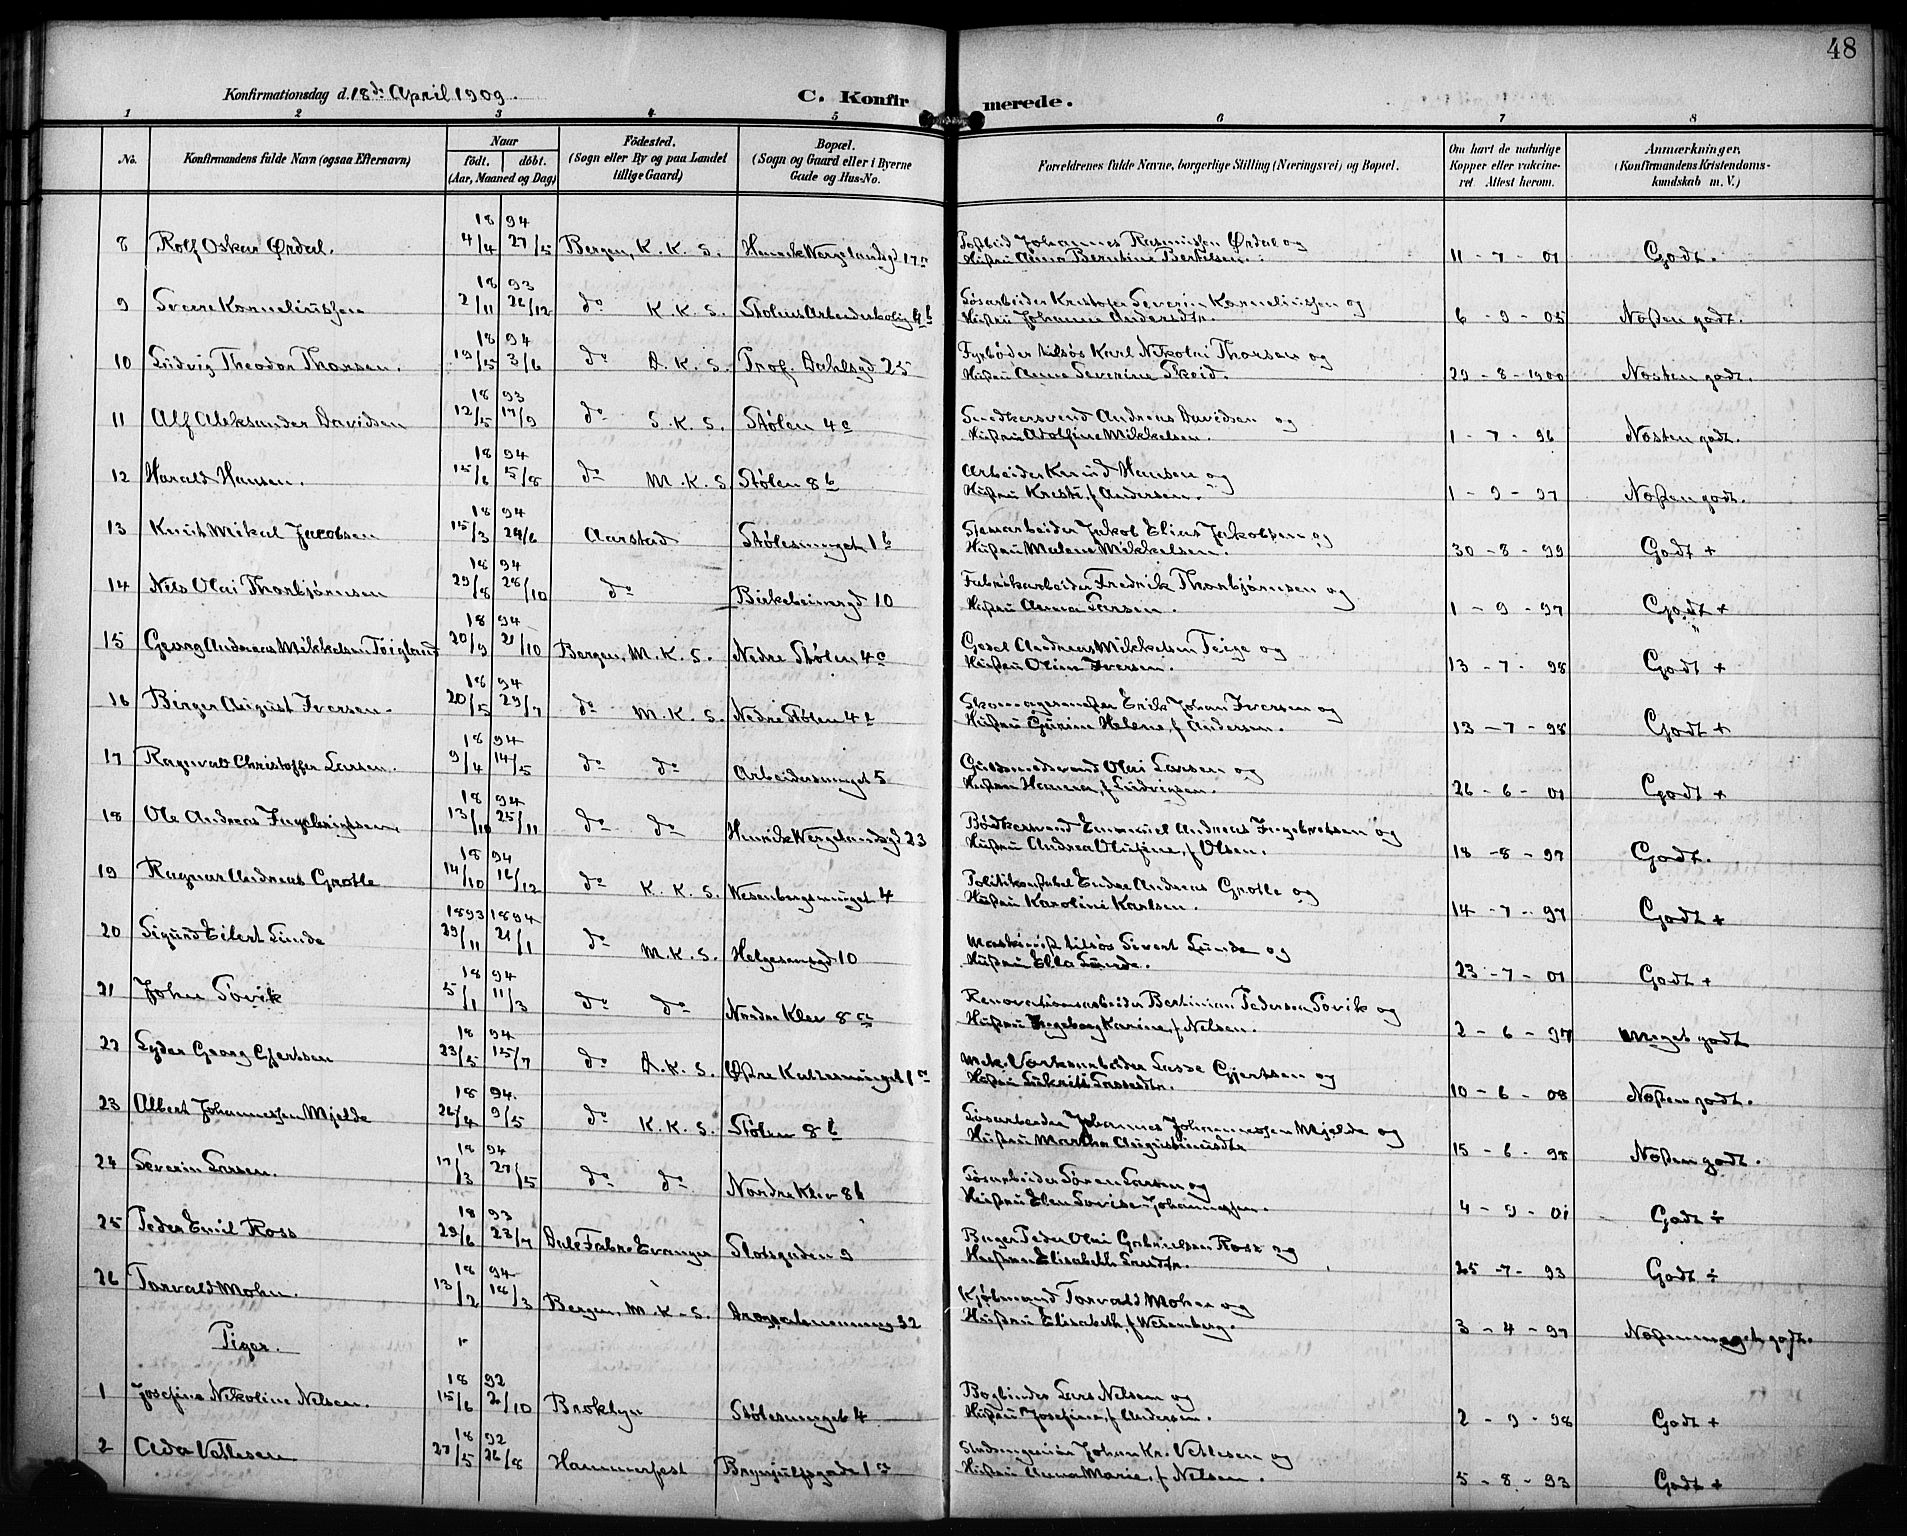 48
Konfirmationsdag d. 18de April 1909.
C. Konfirmerede.
1 2 3 4 5 6 7 8
No.
Konfirmandens fulde Navn (ogsaa Efternavn)
Naar
födt. döbt.
(Aar, Maaned og Dag)
Födested.
(Sogn eller By og paa Landet
tillige Gaard)
Bopæl.
(Sogn og Gaard eller i Byerne
Gade og Hus-No.
Forældrenes fulde Navne, borgerlige Stilling (Næringsvei) og Bopæl.
Om havt de naturlige
Kopper eller vaccine-
ret Attest herom.
Anmærkninger,
(Konfirmandens Kristendoms-
kundskab m. V.)
18 94
8 Rolf Oskar Ørdal. 4/4 27/5 Bergen, K. K. S. Henrik Wergelandsgd 17a Postbud Johannes Rasmussen Ørdal og
Hustru Anna Berntine Bertilsen. 11 - 7 - 01 Godt.
18 93
9 Sverre Korneliussen 2/11 26/12 do K. K. S. Stølens Arbeiderbolig 4b Løsarbeider Kristofer Severin Korneliussen og
Hustru Johanne Andersdtr. 6 - 9 - 05 Næsten godt.
18 94
10 Ludvig Theodor Thorsen. 19/5 3/6 do D. K. S. Prof. Dahlsgd 25 Fyrbøder tilsøs Karl Nikolai Thorsen og
Hustru Anne Severine Skeid. 29 - 8 - 1900 Næsten godt.
18 93
11 Alf Aleksander Davidsen 12/5 17/9 do S. K. S. Stølen 4c Snedkersvend Andreas Davidsen og
Hustru Adolfine Mikkelsen. 1 - 7 - 96 Næsten godt.
18 94
12 Harald Hansen. 15/6 5/8 do M. K. S. Stølen 8b Arbeider Knud Hansen og
Hustru Kresti, f Andersen. 1 - 9 - 97 Næsten godt.
18 94
13 Knut Mikal Jacobsen 15/3 24/6 Aarstad Stølesmuget 1b Stenarbeider Jakob Elias Jakobsen og
Hustru Malene Mikkelsen. 30 - 8 - 99 Godt +
18 94
14 Nels Olai Thorbjørnsen 29/8 28/10 do Birkebeinergd 10 Fabrikarbeider Fredrik Thorbjørnsen og
Hustru Anna Larsen. 1 - 9 - 97 Godt +
18 94
15 Georg Andreas Mikkelsen Teigland 20/9 21/10 Bergen, M. K. S. Nedre Stølen 4c Gesel Andreas Mikkelsen Teige og
Hustru Oline Iversen. 13 - 7 - 98 Godt +
18 94
16 Birger August Iversen. 20/5 29/7 do M. K. S. Nedre Stølen 4b Skomagermester Erik Johan Iversen og
Hustru Gurine Helene, f Andersen. 13 - 7 - 98 Godt +
18 94
17 Ragnvald Christoffer Larsen. 9/4 14/5 do do Arbeidersmuget 5 Guldsmedsvend Olai Larsen og
Hustru Hanna, f Ludvigsen. 26 - 6 - 01 Godt +
18 94
18 Ole Andreas Ingebrigtsen. 13/10 25/11 do do Henrik Wergelandsgd 23 Bødkersvend Emmanuel Andreas Ingebretsen og
Hustru Andrea Olufine, f Olsen. 18 - 8 - 97 Godt.
18 94
19 Ragnar Andreas Grotle 14/10 16/12 do K. K. S. Wesenbergsmuget 4 Politikonstabel Endre Andreas Grotle og
Hustru Karoline Karlsen. 14 - 7 - 97 Godt +
1893 1894
20 Sigurd Eilert Lunde 29/11 21/1 do M. K. S. Helgesensgd 10 Maskinist tilsøs Sivert Lunde og
Hustru Ella Lunde. 23 - 7 - 01 Godt +
18 94
21 John Søvik 5/1 11/3 do do Nordre Klev 8a Renovationsarbeider Bertinius Pedersen Søvik og
Hustru Ingeborg Karine, f Nelsen. 2 - 6 - 97 Meget godt
18 94
22 Lyder Georg Gjertsen 23/5 15/7 do D. K. S. Øvre Kattesmuget 1a Mek. Værksarbeider Lasse Gjertsen og
Hustru Lassedtr. 10 - 6 - 08 Næsten godt.
18 94
23 Albert Johannessen Mjelde 26/4 9/5 do K. K. S. Stølen 8b Løsarbeider Johannes Johannessen Mjelde og
Hustru Martha Augustinusdtr 15 - 6 - 98 Næsten godt.
18 94
24 Severin Larsen. 17/3 27/5 do do Nordre Klev 8b Løsarbeider Søren Larsen og
Hustru Elen Lovise Johannessen. 4 - 9 - 01 Godt ÷
18 93
25 Peder Emil Ross 29/6 23/7 Dale Fabr. Evanger Slotsgaden 9 Bager Peder Olai Gabrielsen Ross og
Hustru Elisabeth 25 - 7 - 93 Godt ÷
18 94
26 Torvald Mohn. 13/2 18/3 Bergen, M. K. S. 32 Kjøbmand Torvald Mohn og
Hustru Elisabeth, f Wesenberg. 3 - 4 - 97 Næsten meget godt.
Piger.
18 92
1 Josefine Nikoline Nilsen. 15/6 2/10 Broklyn Stølesmuget 4 Bogbinder Lars Nelsen og
Hustru Josefine, f Andersen. 2 - 9 - 98 Godt +
18 92
2 Ada Vetlesen 27/5 26/8 Hammerfest Brynjulfsgade 1a Stadsingeniør Johan Kr. Vetlesen og
Hustru Anna Marie, f Nelsen. 5 - 8 - 93 Godt +